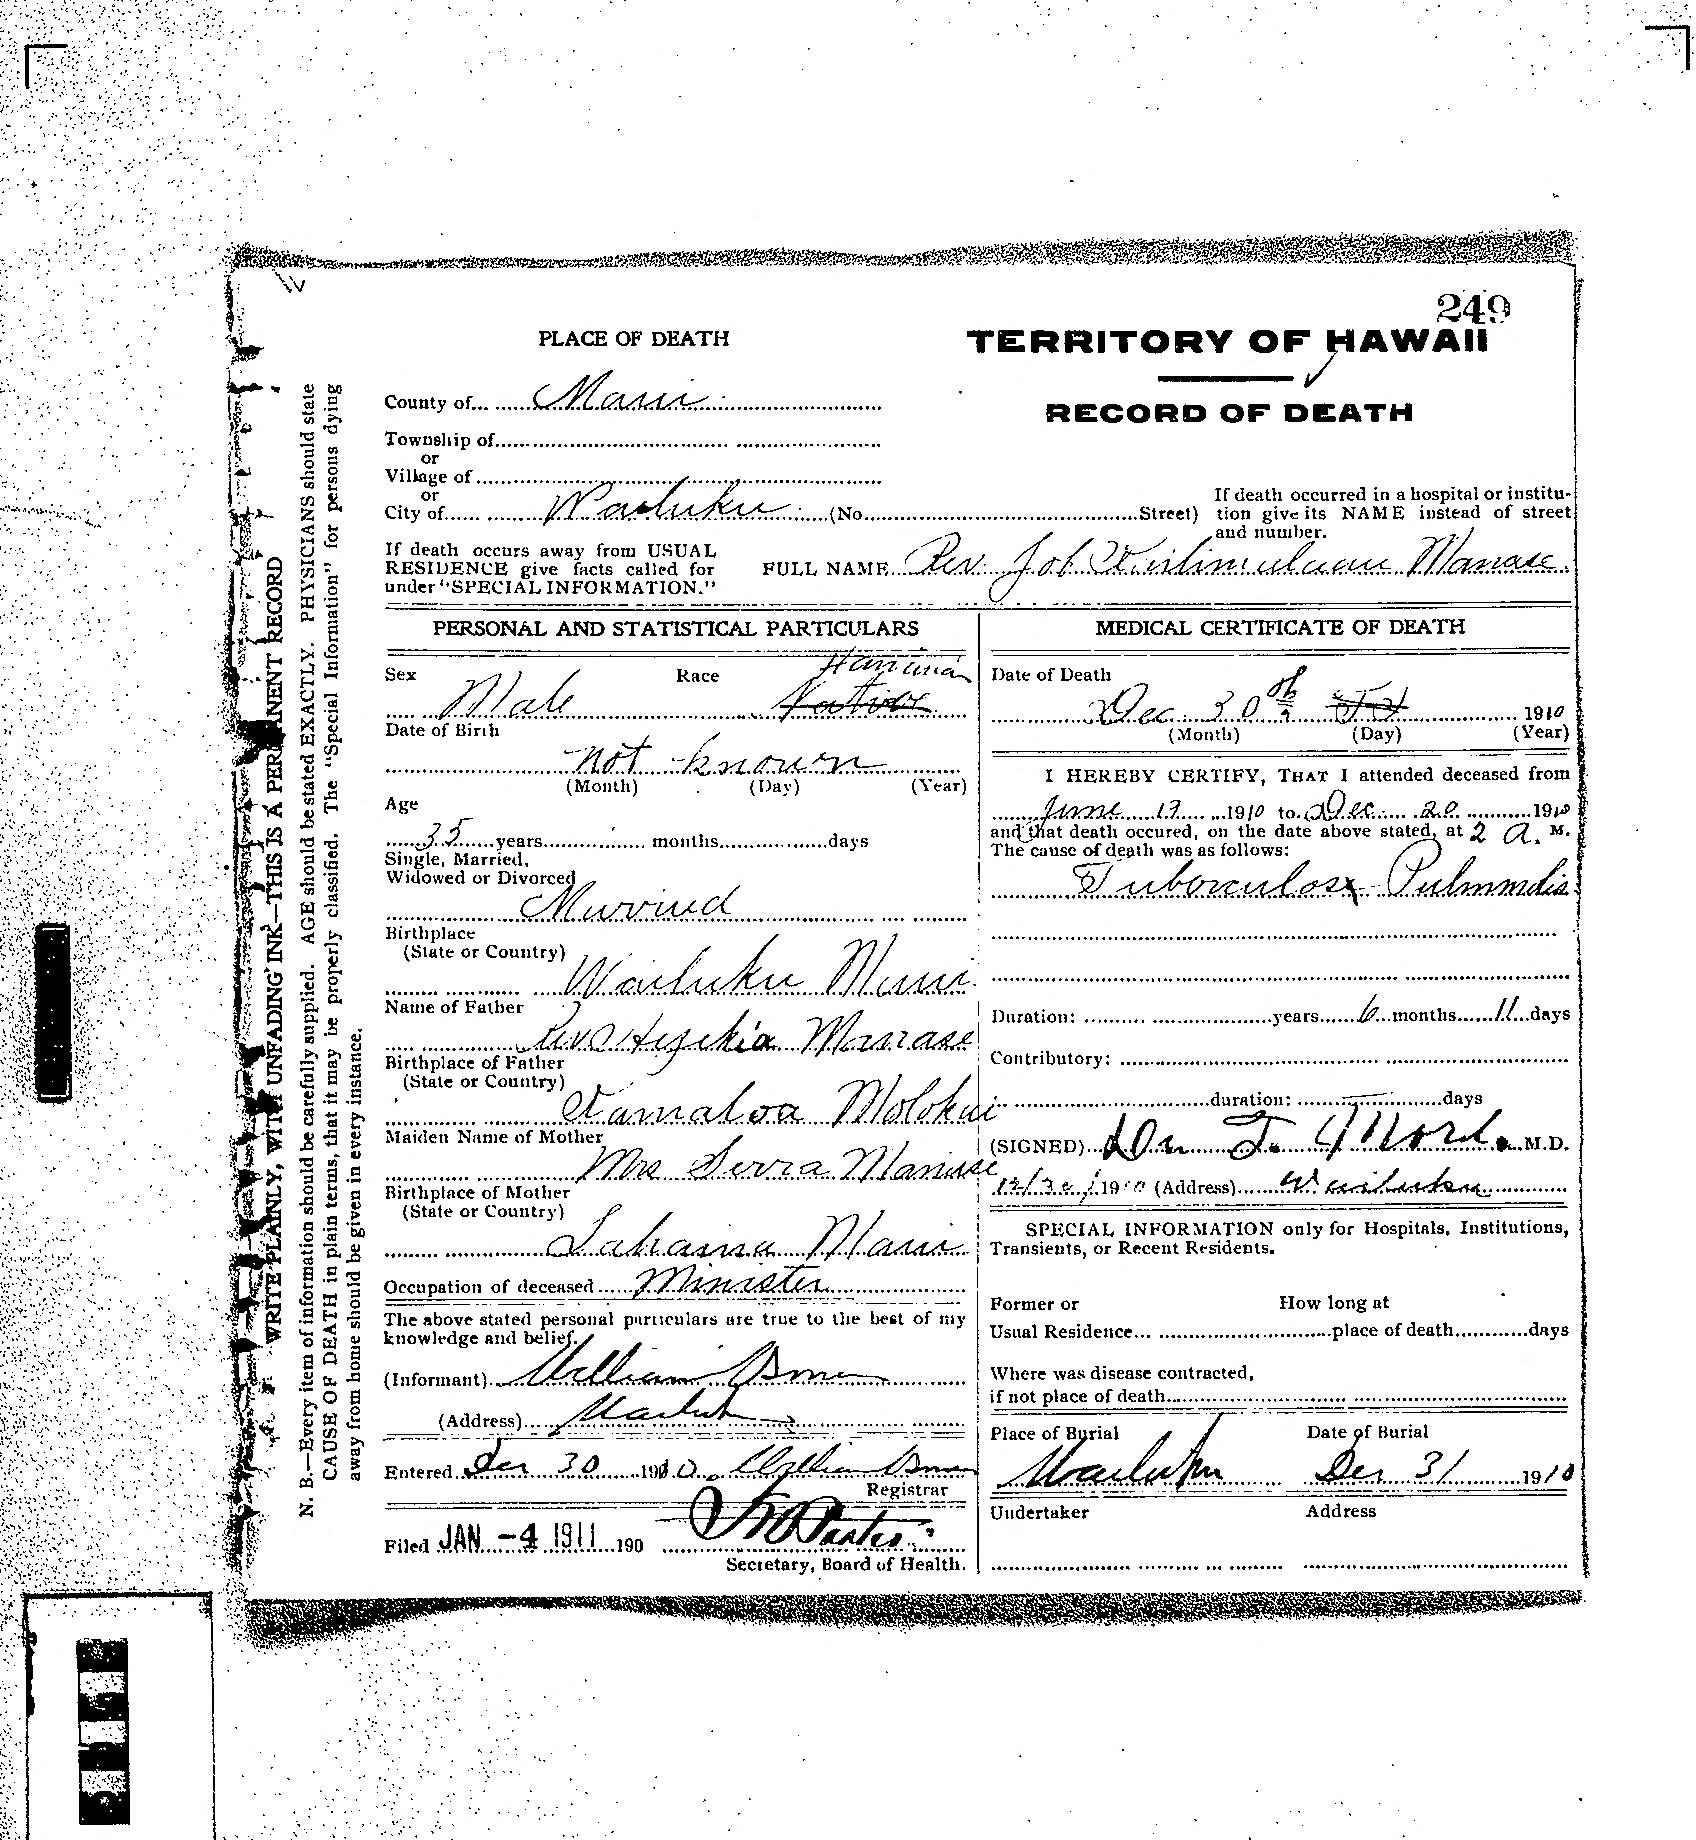 249
PLACE OF DEATH
TERRITORY OF HAWAII
RECORD OF DEATH
County of Maui
Township of
or
Village of
or
City of Wailuku (No. Street)
If death occurred in a hospital or institu-
tion give its NAME instead of street
and number.
If death occurs away from USUAL
RESIDENCE give facts called for
under "SPECIAL INFORMATION."
FULL NAME Rev. Job Manase
PERSONAL AND STATISTICAL PARTICULARS
Sex Race Hawaiian
Male Native
Date of Birth
not known
(Month) (Day) (Year)
Age
35 years months days
Single, Married,
Widowed or Divorced
Married
Birthplace
(State or Country)
Wailuku Maui
Name of Father
Rev Hezekia Manase
Birthplace of Father
(State or Country)
Kamaloa Molokai
Maiden Name of Mother
Mrs Serra Manase
Birthplace of Mother
(State or Country)
Lahaina Maui
Occupation of deceased Minister
The above stated personal particulars are true to the best of my
knowledge and belief.
(Informant) William
(Address) Wailuku
Entered Dec 30 1910. William
Registrar
Filed JAN -4 1911 190
Secretary, Board of Health.
MEDICAL CERTIFICATE OF DEATH
Date of Death
Dec 30th 1910
(Month) (Day) (Year)
I HEREBY CERTIFY, THAT I attended deceased from
June 17 1910 to Dec 20 1910
and that death occured, on the date above stated, at 2 A. M.
The cause of death was as follows:
Tuberculosis Pulmonalis
Duration: years 6 months 11 days
Contributory:
duration: days
(SIGNED) M.D.
12/30/1910 (Address) Wailuku
SPECIAL INFORMATION only for Hospitals, Institutions,
Transients, or Recent Residents.
Former or How long at
Usual Residence place of death days
Where was disease contracted,
if not place of death
Place of Burial Date of Burial
Wailuku Dec 31 1910
Undertaker Address
WRITE PLAINLY, WITH UNFADING INK—THIS IS A PERMANENT RECORD
N. B.—Every item of information should be carefully supplied. AGE should be stated EXACTLY. PHYSICIANS should state
CAUSE OF DEATH in plain terms, that it may be properly classified. The "Special Information" for persons dying
away from home should be given in every instance.